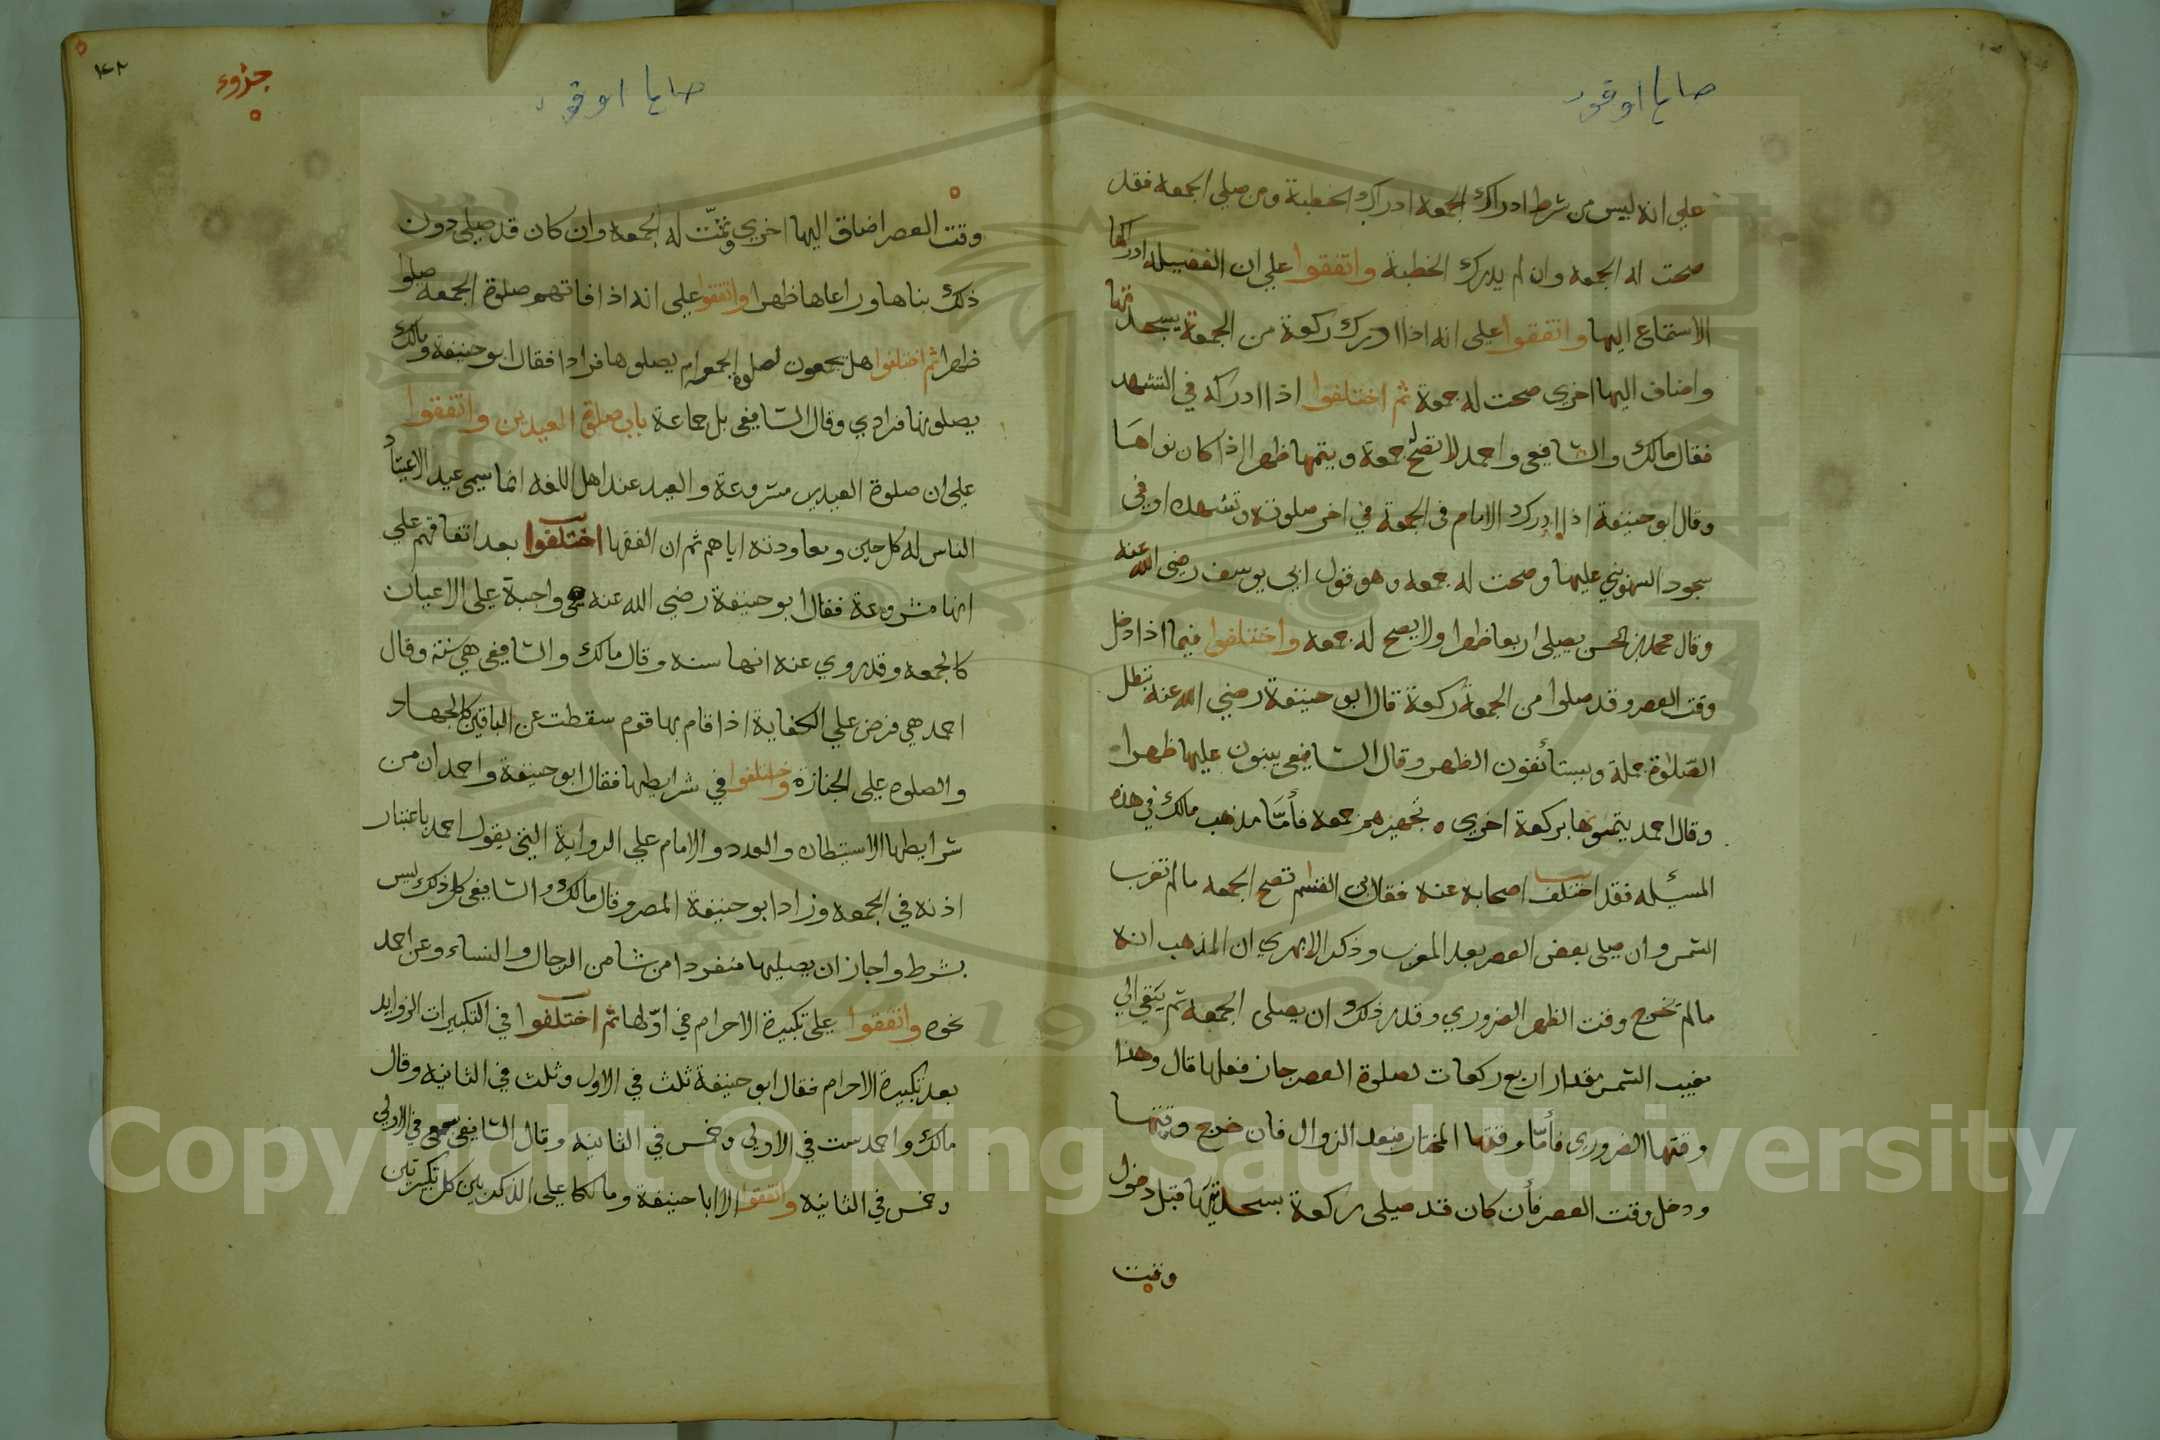 على انه ليس من شرط ادراك الجمعه ادراك الخطبة ومن صلي الجمعه فقد
صحت له الجمعه وان لم يدرك الخطبة واتفقوا علي ان الفضيله ادراكها
الاستماع اليها واتفقوا على انه اذا ادرك ركعة من الجمعة بسجدتها
واضاف اليها اخري صحت له جمعة ثم اختلفوا اذا ادركه في التشهد
فقال مالك والشافعي واحمد لا تصح له جمعة ويتمها ظهرا اذا كان نواها
وقال ابو حنيفة اذا ادرك الامام في الجمعة في اخر صلوته وتشهده او في
سجود السهو بني عليها وصحت له جمعه وهو قول ابي يوسف رضي الله عنه
وقال محمد بن الحسن يصلي اربعا ظهرا ولا يصح له جمعه واختلفوا فيما اذا دخل
وقت العصر وقد صلوا من الجمعة ركعة قال ابو حنيفة رضي الله عنه تبطل
الصلوة جملة ويستأنفون الظهر وقال الشافعي يبنون عليها ظهرا
وقال احمد يتمونها بركعة اخري وتجزيهم جمعه فأما مذهب مالك في هذه
المسئله فقد اختلف اصحابه عنه فقال ابن القسم تصح الجمعه ما لم تغرب
الشمس وان صلى بعض العصر بعد المغرب وذكر الابهري ان المذهب انه
ما لم تخرج وقت الظهر الضروري وقدر ذلك ان يصلى الجمعة ثم يبقي الي
مغيب الشمس مقدار اربع ركعات لصلوة العصر جاز فعلها قال وهذا
وقتها الضروري فأما وقتها المختار فبعد الزوال فان خرج وقتها
ودخل وقت العصر فأن كان قد صلى ركعة بسجدتيها قبل دخول
وقت
وقت العصر اضاف اليها اخري وتمت له الجمعه وان كان قد صلى دون
ذلك بناها وراعاها ظهرا واتفقوا على انه اذا فاتهم صلوة الجمعه صلوا
ظهرا ثم اختلفوا هل يجمعون لصلوة الجمعه ام يصلوها فرادا فقال ابو حنيفة ومالك
يصلونها فرادي وقال الشافعي بل جماعة باب صلوة العيدين واتفقوا
على ان صلوة العيدين مشروعة والعيد عند اهل اللغه انما سمي عيد الاعتياد
الناس له كل حين ومعاودته اياهم ثم ان الفقها اختلفوا بعد اتفاقهم علي
انها مشروعة فقال ابو حنيفة رضي الله عنه هي واجبة على الاعيان
كالجمعه وقد روي عنه انها سنه وقال مالك والشافعي هي سنة وقال
احمد هي فرض علي الكفاية اذا قام بها قوم سقطت عن الباقين كالجهاد
والصلوه على الجنازه واختلفوا في شرايطها فقال ابو حنيفة واحمد ان من
شرايطها الاستيطان والعدد والامام علي الرواية التي يقول احمد باعتبار
اذنه في الجمعه وزاد ابو حنيفة المصر وقال مالك والشافعي كل ذلك ليس
بشرط واجاز ان يصليها منفردا من شا من الرجال والنساء وعن احمد
نحوه واتفقوا على تكبيرة الاحرام في اولها ثم اختلفوا في التكبيرات الزوايد
بعد تكبيرة الاحرام فقال ابو حنيفة ثلث في الاول وثلث في الثانيه وقال
مالك واحمد ست في الاولى وخمس في الثانيه وقال الشافعي سبع في الاولي
وخمس في الثانيه واتفقوا الا ابا حنيفة ومالكا على الذكر بين كل تكبيرتين
Copyright © King Saud University
1957